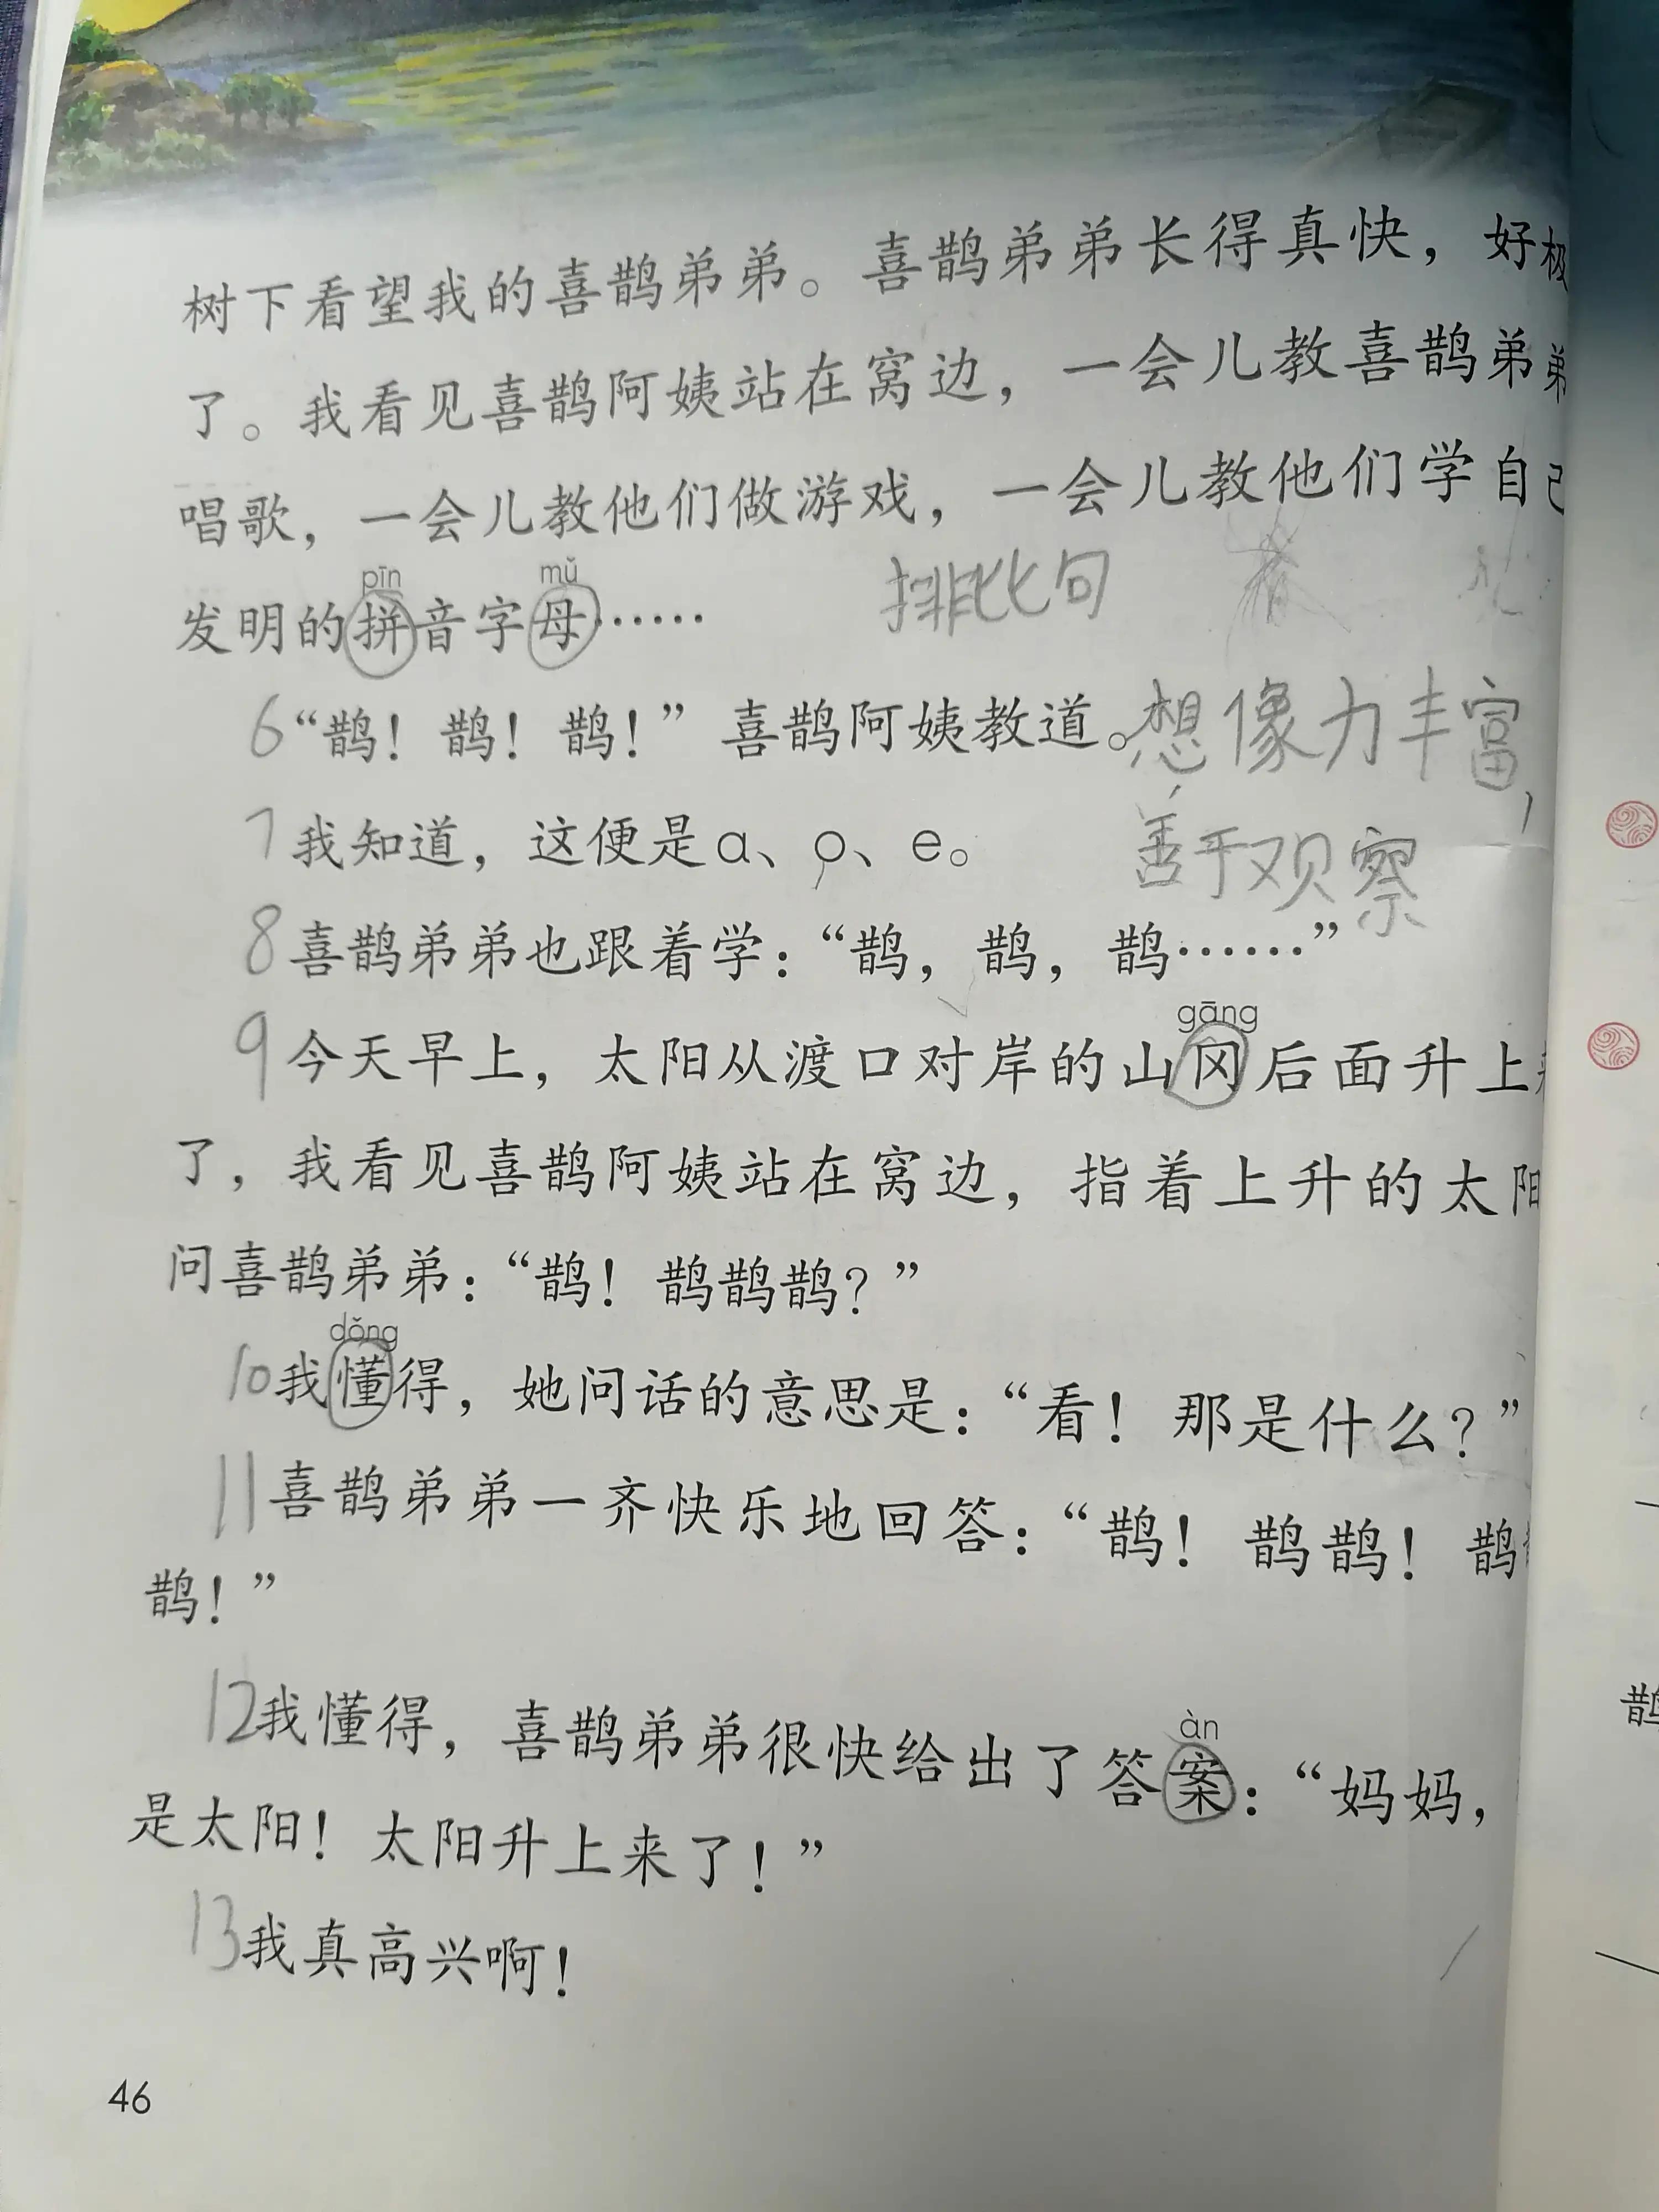 树下看望我的喜鹊弟弟。喜鹊弟弟长得真快，好极
了。我看见喜鹊阿姨站在窝边，一会儿教喜鹊弟弟
唱歌，一会儿教他们做游戏，一会儿教他们学自己
pīn mǔ
发明的拼音字母…… 排比句
6“鹊！鹊！鹊！”喜鹊阿姨教道。想像力丰富，
7我知道，这便是ɑ、o、e。 善于观察
8喜鹊弟弟也跟着学：“鹊，鹊，鹊……”
gāng
9今天早上，太阳从渡口对岸的山冈后面升上来
了，我看见喜鹊阿姨站在窝边，指着上升的太阳
问喜鹊弟弟：“鹊！鹊鹊鹊？”
dǒng
10我懂得，她问话的意思是：“看！那是什么？”
11喜鹊弟弟一齐快乐地回答：“鹊！鹊鹊！鹊
鹊！”
àn
12我懂得，喜鹊弟弟很快给出了答案：“妈妈，
是太阳！太阳升上来了！”
13我真高兴啊！
46
鹊